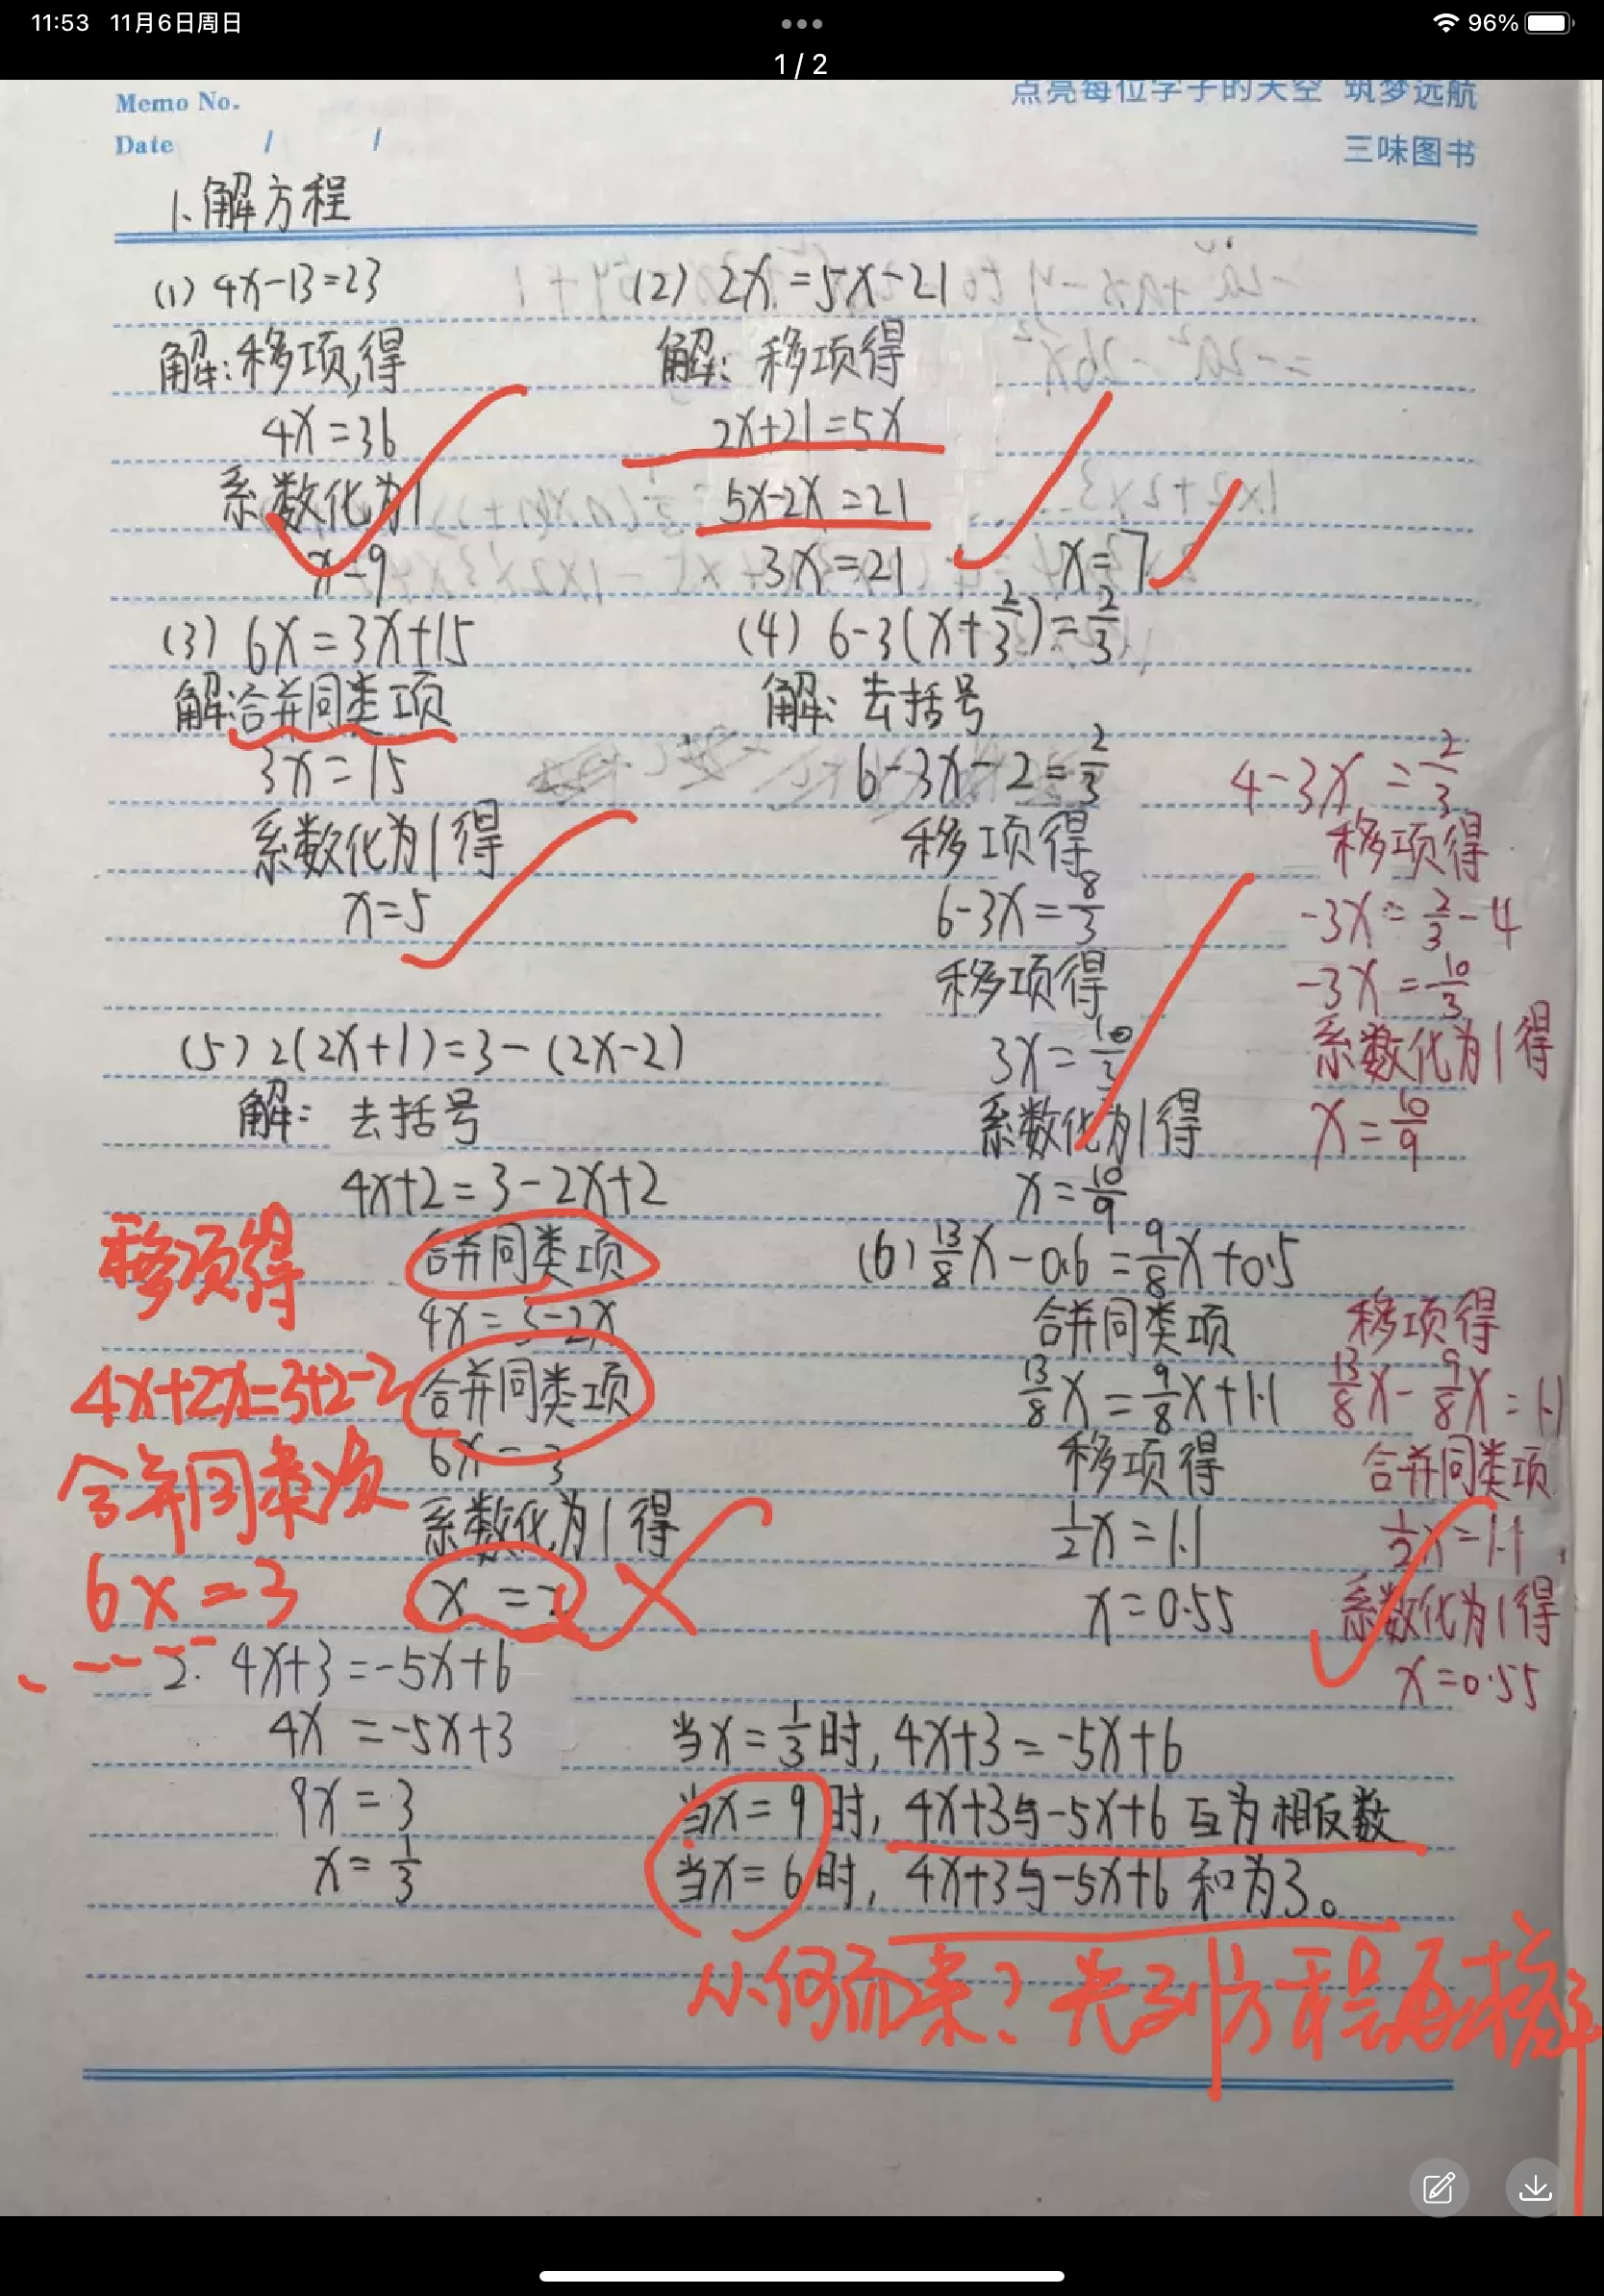 11:53 11月6日周日
96%
1 / 2
Memo No.
点亮每位学子的天空 筑梦远航
Date / /
三味图书
1、解方程
(1) 4x-13=23
解:移项,得
4x=36
系数化为1
x=9
(2) 2x=5x-21
解: 移项得
2x+21=5x
5x-2x=21
3x=21
x=7
(3) 6x=3x+15
解:合并同类项
3x=15
系数化为1得
x=5
(4) 6-3(x+2/3)=2/3
解: 去括号
6-3x-2=2/3
移项得
6-3x=8/3
移项得
3x=10/3
系数化为1得
x=10/9
4-3x=2/3
移项得
-3x=2/3-4
-3x=-10/3
系数化为1得
x=10/9
(5) 2(2x+1)=3-(2x-2)
解: 去括号
4x+2=3-2x+2
合并同类项
4x=3-2x
合并同类项
6x=3
系数化为1得
x=2
移项得
4x+2x=3+2-2
合并同类项
6x=3
(6) 13/8x-0.6=9/8x+0.5
合并同类项
13/8x=9/8x+1.1
移项得
1/2x=1.1
x=0.55
移项得
13/8x-9/8x=1.1
合并同类项
1/2x=1.1
系数化为1得
x=0.55
2. 4x+3=-5x+6
4x=-5x+3
9x=3
x=1/3
当x=1/3时,4x+3=-5x+6
当x=9时,4x+3与-5x+6互为相反数
当x=6时,4x+3与-5x+6和为3。
从何而来?先列方程再